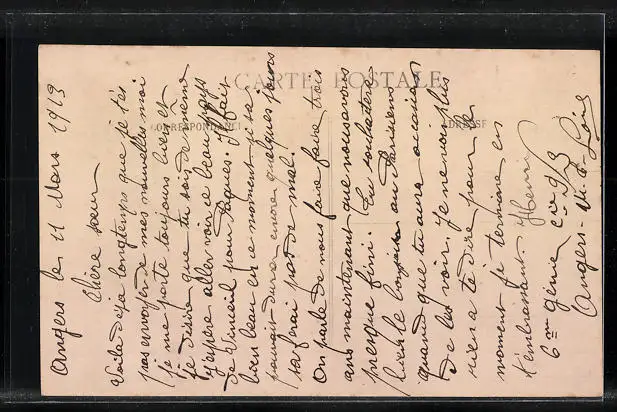 CARTE POSTALE
CORRESPONDANCE
ADRESSE
Angers le 11 Mars 1913
Chère sœur
Voila déja longtemps que je t'ai
pas envoyer de mes nouvelles moi
je me porte toujours bien et
je désire que tu sois de même
J'espère aller voir ce beau pays
de pour Pâques. Il fait
bien beau en ce moment si sa
pouvait durer encore quelques jours
sa ferai pas de mal.
On parle de nous faire faire trois
ans maintenant que nous avons
presque fini. Tu souhaitera
bien le bonjour au Parisiens
quand que tu aura occasion
de les voir. Je ne vois plus
rien a te dire pour le
moment je termine en
t'embrassant Henri
6me génie cie 9/3
Angers. M.-e-Loire